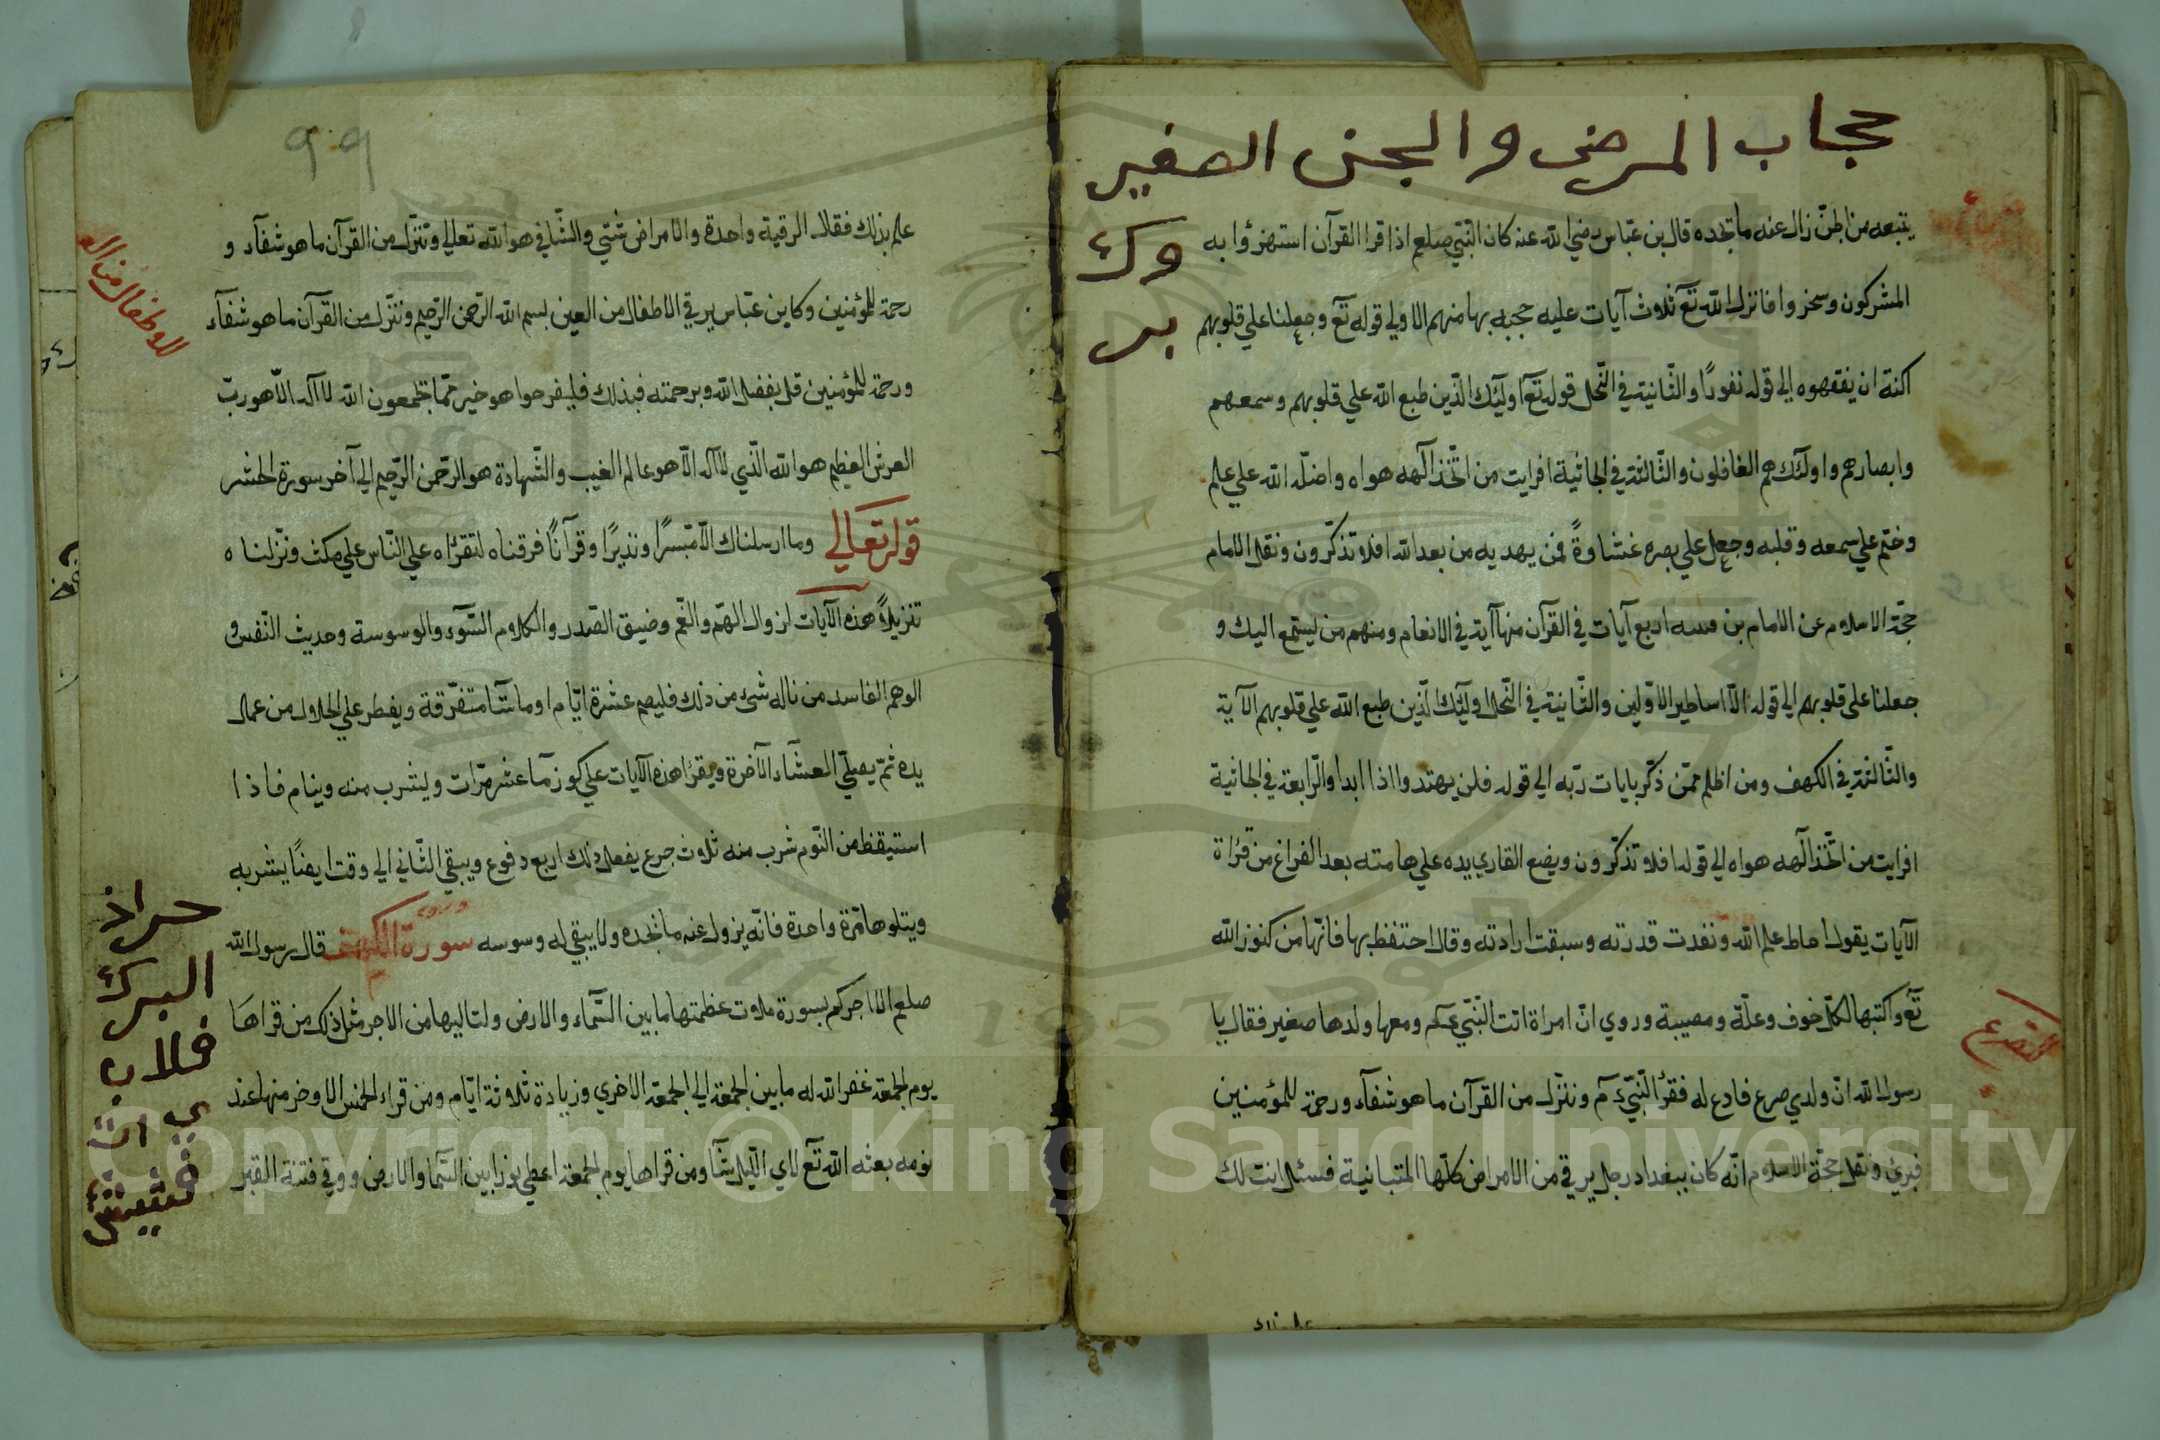 حجاب المرضى والجن الصغير
وك
بر
يتبعه من اطن زال عنه ما تجده قال بن عبّاس رضي الله عنه كان النّبي صلعم اذا قرا القرآن استهزؤا به
المشركون وسخروا فانزل الله تع ثلاوث آيات عليه حجبه بها منهم الاولي قوله تع وجعلنا علي قلوبهم
اكنة ان يفقهوه الي قوله نفورًا والثّانية في النّحل قوله تع اوليٓك الّذين طبع الله علي قلوبهم وسمعهم
وابصارهم واولئك هم الغافلون والثّالثة في الجاثية افرايت من اتّخذ الٓهه هواه واضلّه الله علي علم
وختم علي سمعه وقلبه وجعل علي بصره غشاوةً فمن يهديه من بعد الله افلا تذكّرون ونقل الامام
حجّة الاسلام عن الامام بن اربع آيات في القرآن منها آية في الانعام ومنهم من يستمع اليك و
جعلنا على قلوبهم الي قوله الّا اساطير الاوّلين والثّانية في النّحل اوليٓك الّذين طبع الله علي قلوبهم الآية
والثالثة في الكهف ومن اظلم ممّن ذكّر بايات ربّه الي قوله فلن يهتدوا اذا ابدا والرّابعة في الجاثية
افرايت من اتّخذ الٓهه هواه الي قوله افلا تذكّرون ويضع القاري يده علي هامته بعد الفراغ من قراة
الآيات يقول احاط علم الله ونفدت قدرته وسبقت ارادته وقال احتفظ بها فانّها من كنوز الله
تع واكتبها لكلّ خوف وعلّة ومصيبة وروي انّ امراة اتت النّبي عم ومعها ولدها صغير فقال يا
رسول الله انّ ولدي صرع فادع له فقرٔ النّبيّ عم وننزّل من القرآن ما هو شفآء ورحمة للمؤمنين
فبرئ ونقل حجّة الاسلام انّه كان ببغداد رجل يرقي من الامراض كلّها المتباينة فسئل انت لك
علم بذلك
99
علم بذلك فقال الرقية واحدة والامراض شتي والشّافي هو الله تعالي وننزّل من القرآن ما هو شفآء و
رحمة للمؤمنين وكا بن عبّاس يرقي الاطفال من العين بسم الله الرّحمن الرّحيم وننزّل من القرآن ما هو شفآء
ورحمة للمؤمنين قل بفضل الله وبرحمته فبذلك فليفرحوا هو خير ممّا تجمعون الله لا اله الّا هو ربّ
العرش العظيم هو الله الّذي لا اله الّا هو عالم الغيب والشّهادة هو الرّحمن الرّحيم الي آخر سورة الحشر
قوله تعالي وما ارسلناك الّا مبشرًا ونذيرًا وقرآنًا فرقناه لتقرٔاه علي النّاس علي مكث ونزّلناه
تنزيلًا هذه الآيات لزوال الهمّ والغّم وضيق الصّدر والكلام السّوء والوسوسة وحديث النّفس و
الوهم الفاسد من ناله شئ من ذلك فليصم عشرة ايّام او ما شآ متفرّقة ويفطر علي الحلال من عمل
يده ثمّ يصلّي العشآء الآخرة ويقرٔا هذه الآيات علي كوز مآ عشر مرّات وليشرب منه وينام فاذا
استيقظ من النّوم شرب منه ثلاث جرع يفعل ذلك اربع دفوع ويبقي الثّاني الي وقت ايضًا يشربه
ويتلوها مرّة واحدة فانّه يزول عنه ما تجده ولا يبقي له وسوسه سورة الكهف قال رسول الله
صلعم الا اخبركم بسورة ملات عظمتها ما بين السّماء والارض ولتاليها من الاجر مثل ذلك من قراها
يوم الجمعة غفر الله له ما بين الجمعة الي الجمعة الاخري وزيادة ثلاثة ايّام ومن قراء الخمس الاواخر منها عند
نومه بعثه الله تع لاي الّليل شآ ومن قراها يوم الجمعة اعطي نورا بين السّمآ والارض ووقي فتنة القبر
للاطفال من العين
للصرع
البرك
فلان
ان
Copyright © King Saud University
1957